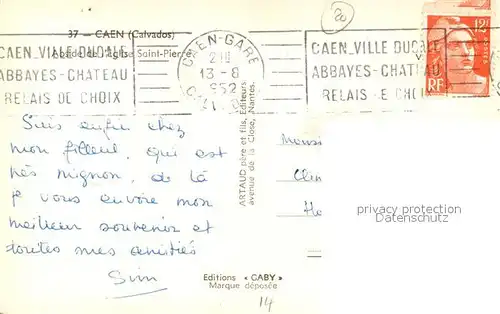 37 — CAEN (Calvados)
Abside de l'Eglise Saint-Pierre
CAEN VILLE DUCALE
ABBAYES - CHATEAU
RELAIS DE CHOIX
CAEN-GARE
13-8
1952
CAEN VILLE DUCALE
ABBAYES - CHATEAU
RELAIS DE CHOIX
12F
RF
Suis enfin chez
mon filleul, qui est
très mignon, de là
je vous envoie mon
meilleur souvenir et
toutes mes amitiés
Sim
ARTAUD père et fils, Editeurs
avenue de la Close, Nantes.
privacy protection
Editions « GABY »
Marque déposée
14